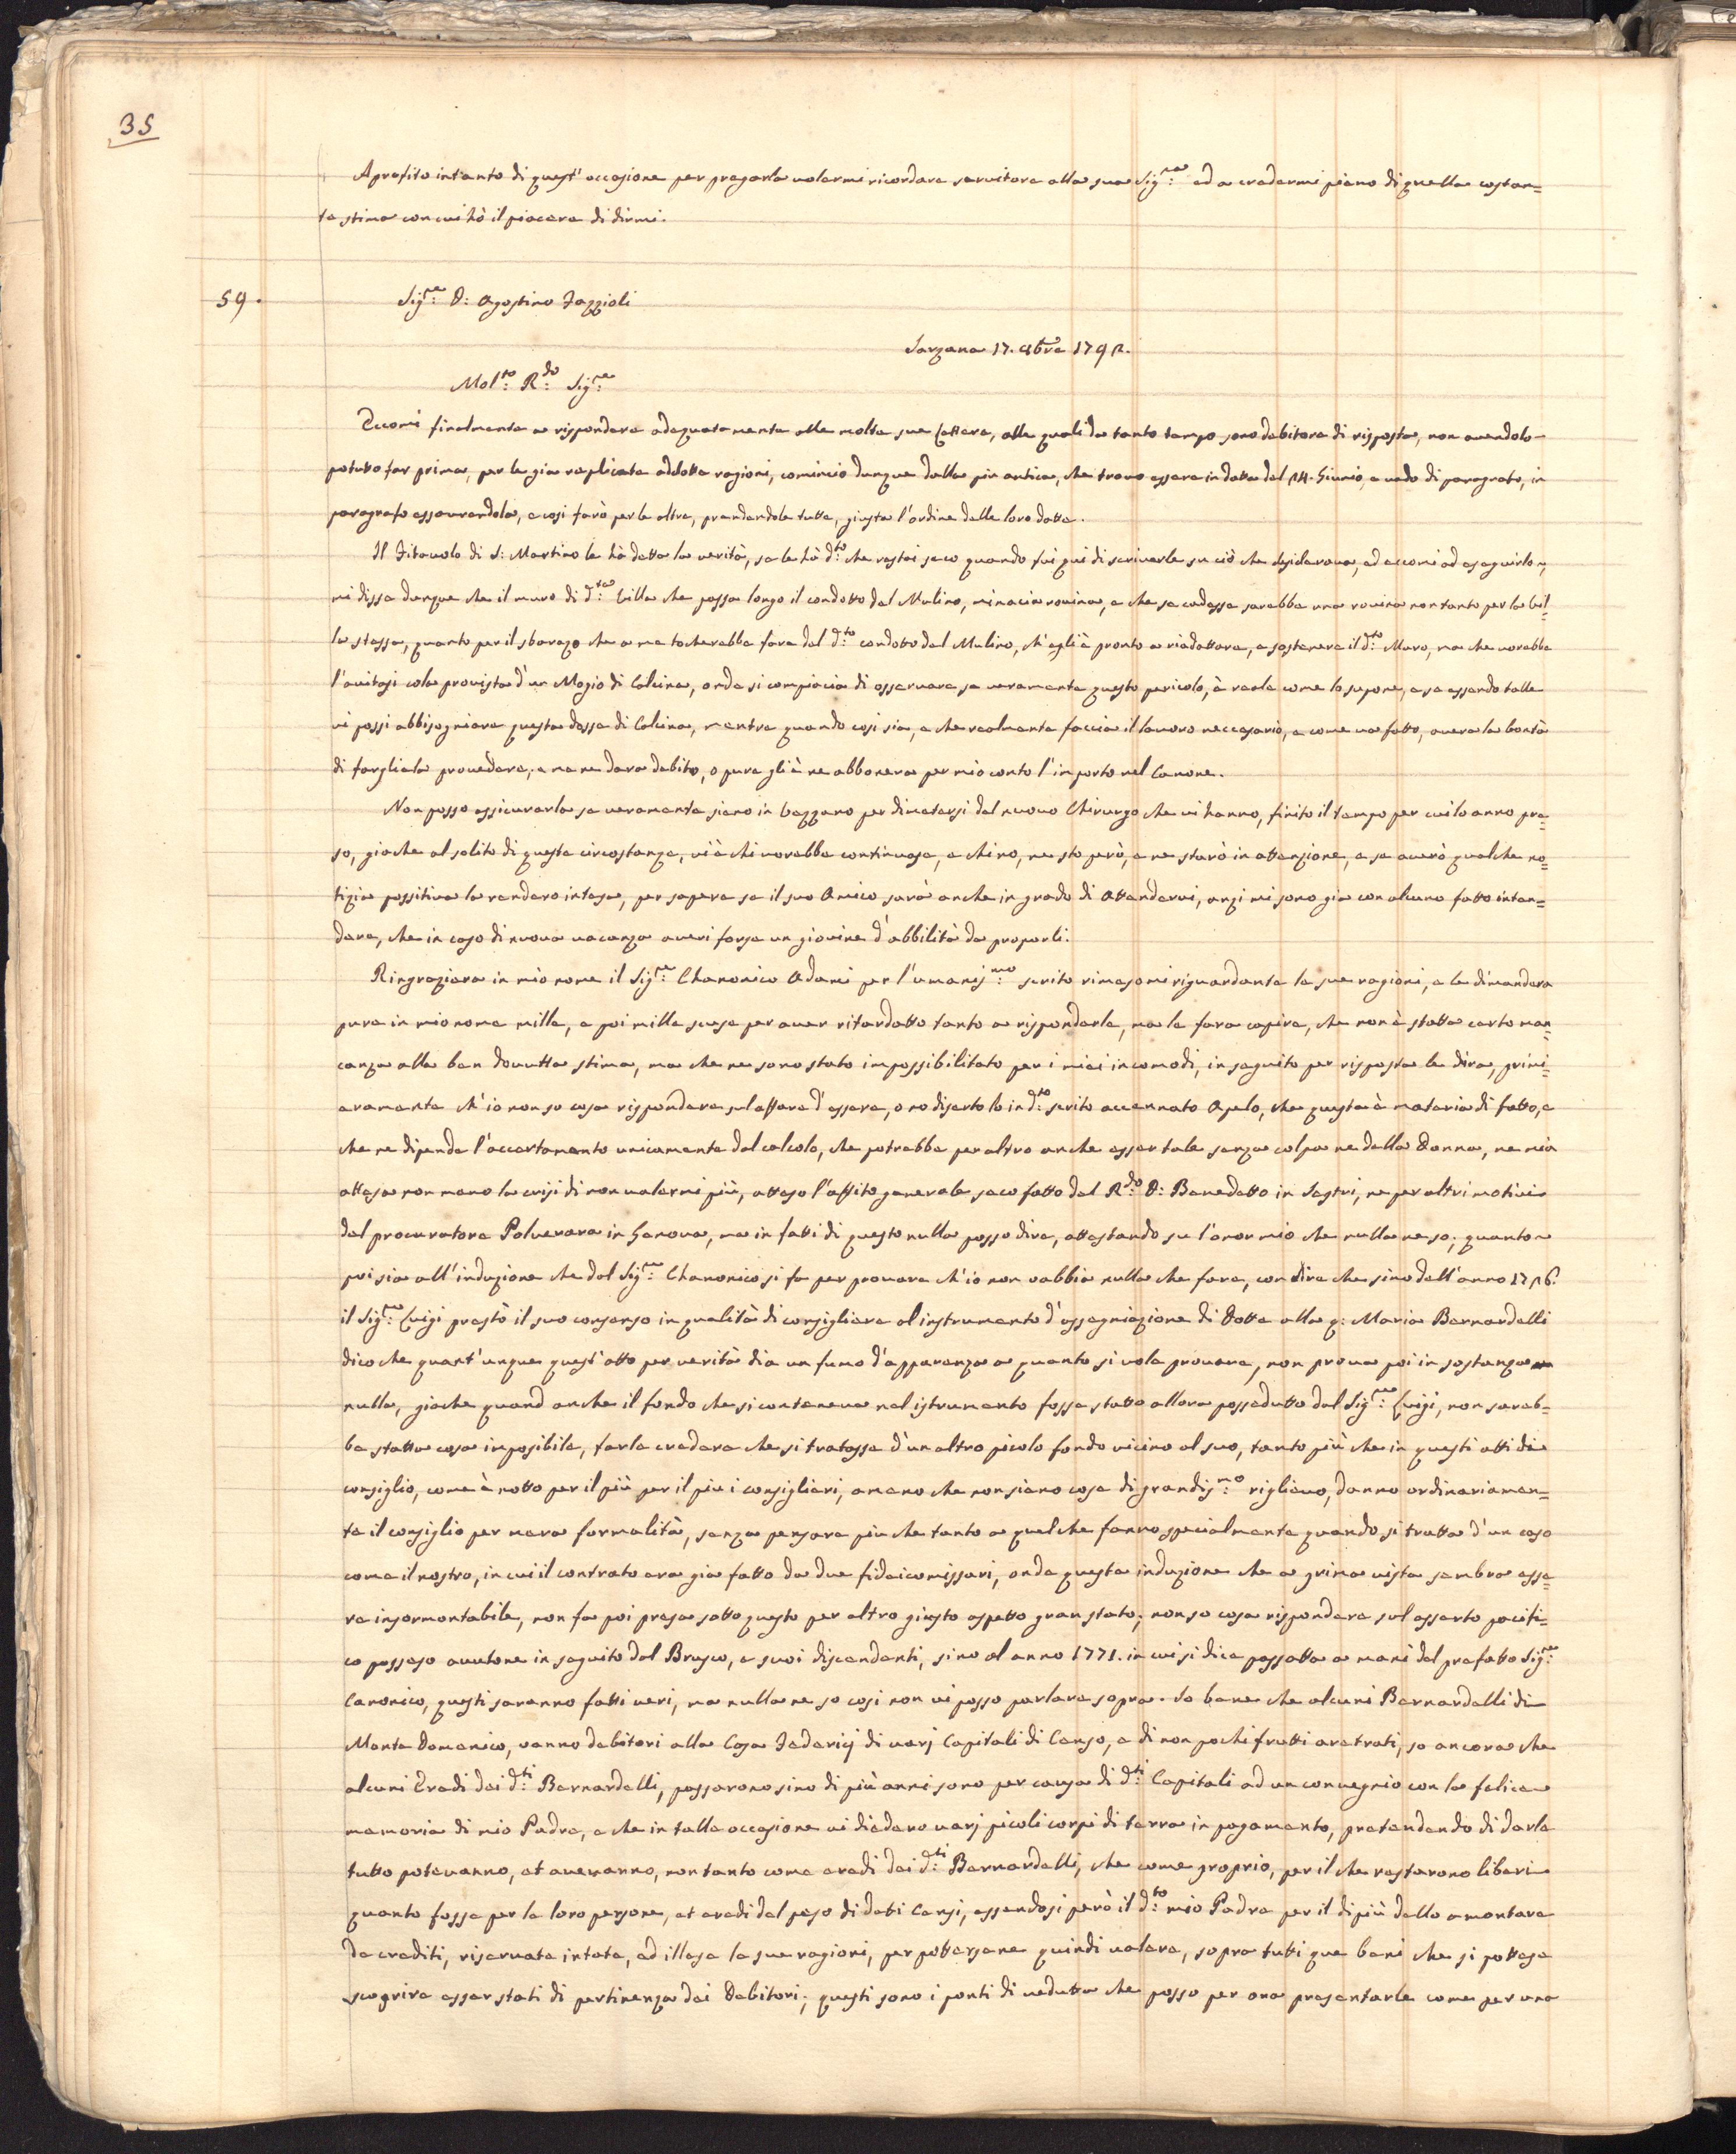 35
Aprofito intanto di quest' occasione per pregarla volermi ricordare servitore alla sua Sig:ra ed a credermi pieno di quella costan=
te stima con cui hò il piacere di dirmi.
59.
Sig:re D: Agostino Fazzioli
Sarzana 17. 9bre 1792.
Mol:to R:do Sig:re
Eccomi finalmente a rispondere adequatamente alle molte sue Lettere, alle quali da tanto tempo sono debitore di risposta, non avendolo
potuto far prima, per le gia replicate addotte ragioni, comincio dunque dalla piu antica, che trovo essere in data del 24. Giunio, e vado di paragrafo, in
paragrafo essaurendola, e cosi farò per le altre, prendendole tutte, giusta l'ordine delle loro datte.
Il Fitavolo di S: Martino le hà detta la verità, se le hà d:to che restai seco quando fui qui di scriverle su ciò che desiderava, ed eccomi ad eseguirlo,
mi disse dunque che il muro di d:ta Villa che passa longo il condotto del Mulino, minacia rovina, e che se cadesse sarebbe una rovina non tanto per la Vil=
la stessa, quanto per il sbarazo che a me tocherebbe fare del d:to condotto del Mulino, ch'egli è pronto a riadattare, e sostenere il d:to Muro, ma che vorebbe
l'avitasi cola provista d'un Mogio di Calcina, onde si compiacia di osservare se veramente questo pericolo, è reale come lo supone, e se essendo talle
vi possi abbisogniare questa dosse di Calcina, mentre quando cosi sia, e che realmente faccia il lavoro neccesario, e come va fatto, avere la bontà
di fargliela provedere, e me ne dara debito, o pure gli è ne abbonera per mio conto l'importo nel Canone.
Non posso assicurarla se veramente siano in Vezzano per dimetersi del nuovo Chirurgo che vi hanno, finito il tempo per cui lo anno pre=
so, gioche al solito di queste circostanze, vi è chi vorebbe continuase, e chi no, ne sto però, e ne starò in attenzione, e se averò qualche no=
tizia possitiva la rendero intesa, per sapere se il suo Amico sarà anche in grado di Attendervi, anzi mi sono gia con alcuno fatto inten=
dere, che in caso di nuova vacanza averi forse un giovine d'abbilità da proporli.
Ringraziera in mio nome il Sig:re Chanonico Adami per l'umanis:mo scrito rimesomi riguardante le sue ragioni, e le dimandera
pure in mio nome mille, e poi mille scuse per aver ritardatto tanto a risponderle, ma le fara capire, che non è statta certo man=
canza alla ben dovutta stima, ma che ne sono stato impossibilitato per i miei incomodi, in seguito per risposta le dira, primi=
eramente ch'io non so cosa rispondere sul affare d'essere, o no diserto lo in d:to scrito accennato Apelo, che questa è materia di fatto, e
che ne dipende l'accertamento unicamente dal calcolo, che potrebbe per altro anche esser tale senza colpa ne della Donna, ne mia
attesa non meno la crisi di non valermi più, atteso l'affito generale seco fatto dal R:do D: Benedetto in Sestri, ne per altri motivi
del procuratore Polverara in Genova, ma in fatti di questo nulla posso dire, attestando su l'onor mio che nulla ne so; quanto
poi sia all'induzione che dal Sig:re Chanonico si fa per provare ch'io non v'abbia nulla che fare, con dire che sino dall'anno 1726.
il Sig:re Luigi prestò il suo consenso in qualità di consigliere al instrumento d'assegniazione di Dotte alla q: Maria Bernardelli
dico che quant'unque quest'atto per verità dia un fumo d'apparenza a quanto si vole provare, non prova poi in sostanza
nulla, gioche quand anche il fondo che si conteneva nel istrumento fosse statto allora possedutto dal Sig:re Luigi, non sareb=
be statta cosa imposibile, farle credere che si tratasse d'un altro picolo fondo vicino al suo, tanto più che in questi atti di
consiglio, come è notto per il più per il piu i consiglieri, ameno che non siano cose di grandis:mo riglievo, danno ordinariamen=
te il consiglio per mera formalità, senza pensare piu che tanto a quel che fanno specialmente quando si tratta d'un caso
come il nostro, in cui il contrato era gia fatto da due fideicomissari, onde questa induzione che a prima vista sembra esse=
re insormontabile, non fa poi presa sotto questo per altro giusto aspetto gran stato; non so cosa rispondere sul asserto pacifi=
co possaso avutone in seguito dal Brusco, e suoi discendenti, sino al anno 1771. in cui si dice passatta a mani del prefatto Sig:re
Canonico, questi saranno fatti veri, ma nulla ne so cosi non vi posso parlare sopra. So bene che alcuni Bernardelli di
Monte Domenico, vanno debitori alla Casa Federicj di varj Capitali di Censo, e di non pochi frutti aretrati, so ancora che
alcuni Eredi dei d:ti Bernardelli, passarono sino di più anni sono per causa di d:ti Capitali ad un convegnio con la felice
memoria di mio Padre, e che in talle occasione vi diedero varj picoli corpi di terra in pagamento, pretendendo di darle
tutto potevanno, et avevanno, non tanto come eredi dei d:ti Bernardelli, che come proprio, per il che restarono liberi
quanto fosse per le loro persone, et eredi dal peso di deti Censi, essendosi però il d:to mio Padre per il di più dello amontare
de crediti, riservata intata, ed illesa le sue ragioni, per pottersene quindi valere, sopra tutti que beni che si pottese
scoprire esser stati di pertinenza dei Debitori; questi sono i ponti di veduta che posso per ora presentarle come per una